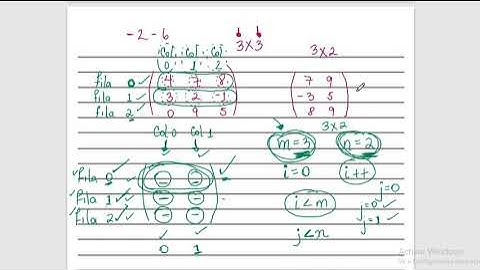 -2-6
3x3
3x2
Col Col Col
0 1 2
fila 0 4 7 8
fila 1 3 2 -1
fila 2 0 9 5
7 9
-3 5
8 9
3x2
Col 0 Col 1
m=3 n=2
Fila 0
i=0 i++
Fila 1
Fila 2
i<m
j=0
j=0
j=1
j<n
0 1